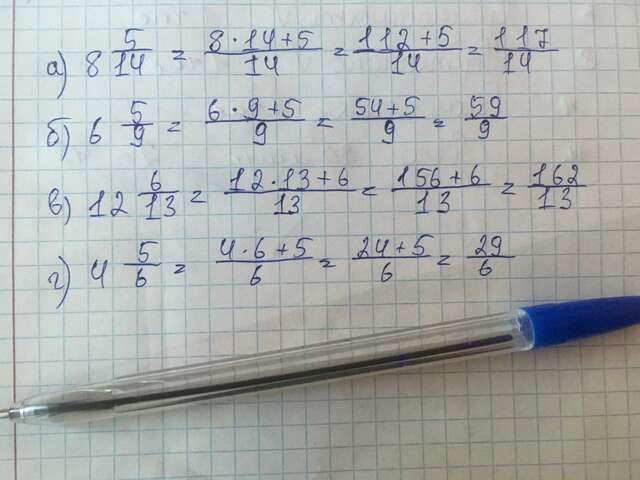 а) 8 5/14 = (8·14+5)/14 = (112+5)/14 = 117/14
б) 6 5/9 = (6·9+5)/9 = (54+5)/9 = 59/9
в) 12 6/13 = (12·13+6)/13 = (156+6)/13 = 162/13
г) 4 5/6 = (4·6+5)/6 = (24+5)/6 = 29/6